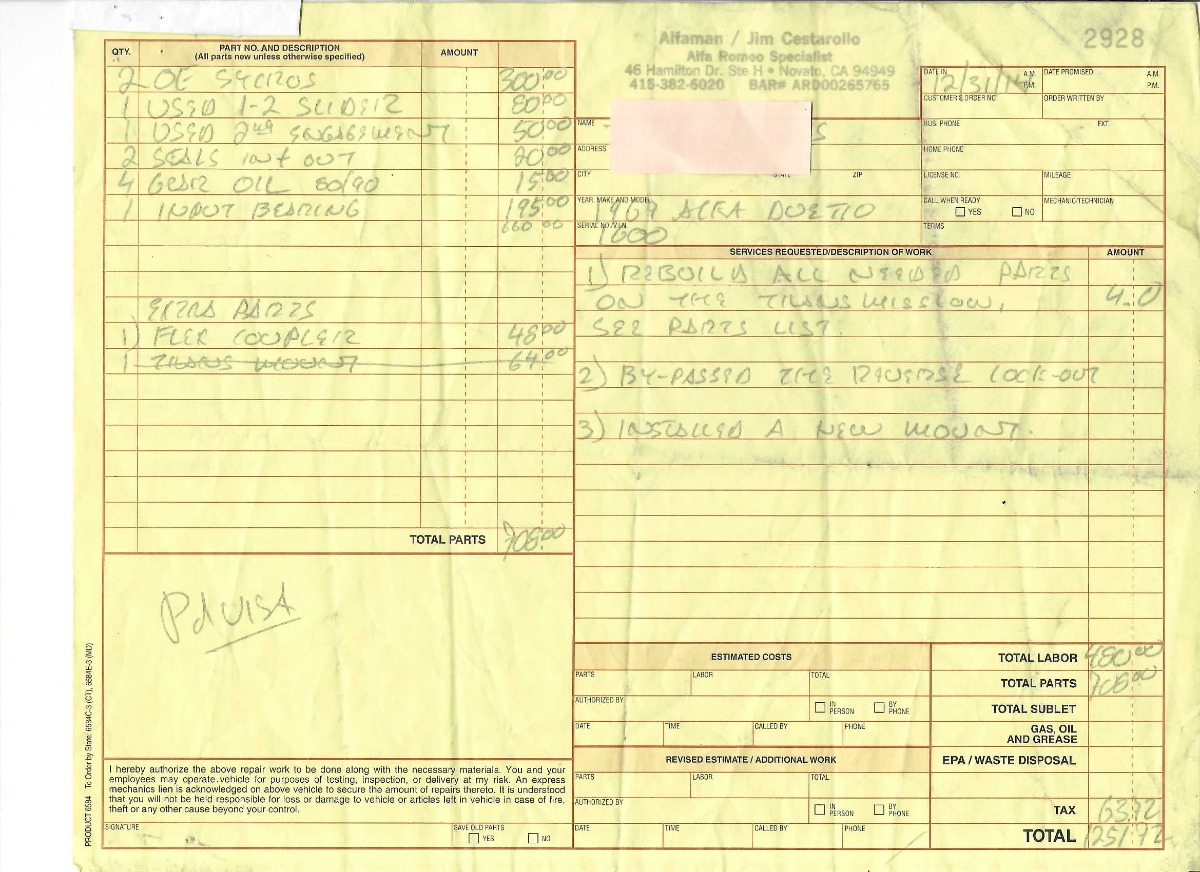 Alfaman / Jim Cestarollo
Alfa Romeo Specialist
46 Hamilton Dr. Ste H • Novato, CA 94949
415-382-6020 BAR# ARD00265765
2928
QTY. PART NO. AND DESCRIPTION AMOUNT
(All parts new unless otherwise specified)
2 OE SYCROS 300.00
1 USED 1-2 SLIDER 80.00
1 USED 2nd ENGAGEMENT 50.00
2 SEALS IN & OUT 20.00
4 GEAR OIL 80/90 15.00
1 INPUT BEARING 195.00
660.00
EXTRA PARTS
1) FLEX COUPLER 48.00
1 TRANS MOUNT 64.00
TOTAL PARTS 708.00
Pd VISA
PRODUCT 6594 To Order by State: 6594C-3 (CT), 6584E-3 (MD)
I hereby authorize the above repair work to be done along with the necessary materials. You and your
employees may operate vehicle for purposes of testing, inspection, or delivery at my risk. An express
mechanics lien is acknowledged on above vehicle to secure the amount of repairs thereto. It is understood
that you will not be held responsible for loss or damage to vehicle or articles left in vehicle in case of fire,
theft or any other cause beyond your control.
SIGNATURE SAVE OLD PARTS
YES NO
DATE IN 12/31/14 A.M. P.M. DATE PROMISED A.M. P.M.
CUSTOMER'S ORDER NO. ORDER WRITTEN BY
NAME S BUS. PHONE EXT.
ADDRESS HOME PHONE
CITY STATE ZIP LICENSE NO. MILEAGE
YEAR, MAKE AND MODEL 1969 ALFA DUETTO CALL WHEN READY YES NO MECHANIC/TECHNICIAN
SERIAL NO./V.I.N. 1600 TERMS
SERVICES REQUESTED/DESCRIPTION OF WORK AMOUNT
1) REBUILD ALL NEEDED PARTS
ON THE TRANSMISSION, 4.0
SEE PARTS LIST.
2) BY-PASSED THE REVERSE LOCK-OUT
3) INSTALLED A NEW MOUNT.
ESTIMATED COSTS
PARTS LABOR TOTAL
AUTHORIZED BY IN PERSON BY PHONE
DATE TIME CALLED BY PHONE
REVISED ESTIMATE / ADDITIONAL WORK
PARTS LABOR TOTAL
AUTHORIZED BY IN PERSON BY PHONE
DATE TIME CALLED BY PHONE
TOTAL LABOR 480.00
TOTAL PARTS 708.00
TOTAL SUBLET
GAS, OIL
AND GREASE
EPA / WASTE DISPOSAL
TAX 63.72
TOTAL 1251.72